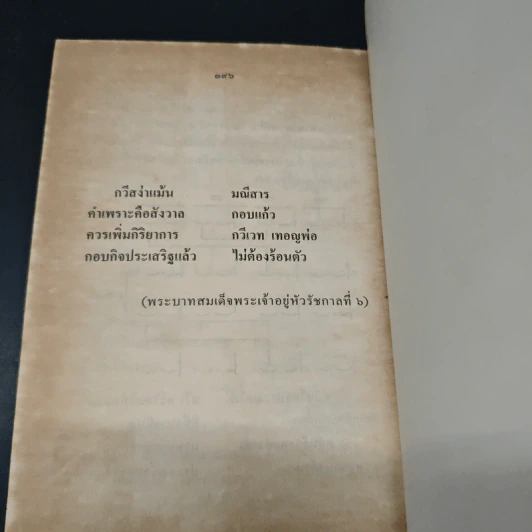 ๑๙๖
กวีสง่าแม้น มณีสาร
คำเพราะคือสังวาล กอบแก้ว
ควรเพิ่มกิริยาการ กวีเวท เทอญพ่อ
กอบกิจประเสริฐแล้ว ไม่ต้องร้อนตัว
(พระบาทสมเด็จพระเจ้าอยู่หัวรัชกาลที่ ๖)